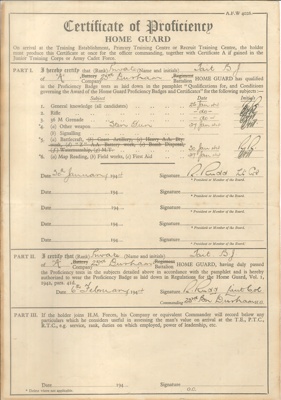 A.F.W 4026.
Certificate of Proficiency
HOME GUARD
On arrival at the Training Establishment, Primary Training Centre or Recruit Training Centre, the holder
must produce this Certificate at once for the officer commanding, together with Certificate A if gained in the
Junior Training Corps or Army Cadet Force.
PART I. I hereby certify that (Rank) Private (Name and initials) Tait B J
of K Battery Company Durham Regiment Battalion HOME GUARD has qualified
in the Proficiency Badge tests as laid down in the pamphlet "Qualifications for, and Conditions
governing the Award of the Home Guard Proficiency Badges and Certificates" the following subjects:—
Subject Date
1. General knowledge (all candidates)
2. Rifle
3. 36 M Grenade
4. (a) Other weapon Sten Gun
(b) Signalling
5. (a) Battlecraft, (b) Coast Artillery, (c) Heavy A.A. Bty.
work, (d) "Z" A.A. Battery work, (e) Bomb Disposal,
(f) Watermanship, (g) M.T.
6. (a) Map Reading, (b) Field works, (c) First Aid
Date January 194 Signature
* President or Member of the Board.
Date 194 Signature
* President or Member of the Board.
Date 194 Signature
* President or Member of the Board.
Date 194 Signature
* President or Member of the Board.
PART II. I certify that (Rank) Private (Name and initials) Tait B J
of K Battery Company Durham Regiment Battalion HOME GUARD, having duly passed
the Proficiency tests in the subjects detailed above in accordance with the pamphlet and is hereby
authorized to wear the Proficiency Badge as laid down in Regulations for the Home Guard, Vol. 1,
1942, para. 41d.
Date February 194 Signature Lieut Col
Commanding Bn Durham
PART III. If the holder joins H.M. Forces, his Company or equivalent Commander will record below any
particulars which he considers useful in assessing the man's value on arrival at the T.R., P.T.C.,
R.T.C., e.g. service, rank, duties on which employed, power of leadership, etc.
Date 194 Signature
O.C.
* Delete where not applicable.